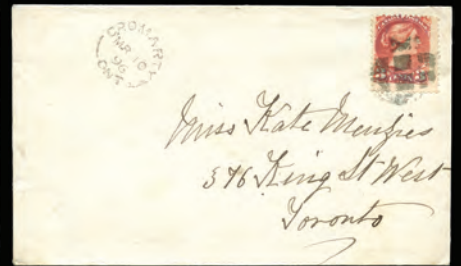 CROMARTY
MAR 10
96
ONT
Miss Kate Menzies
376 King St West
Toronto